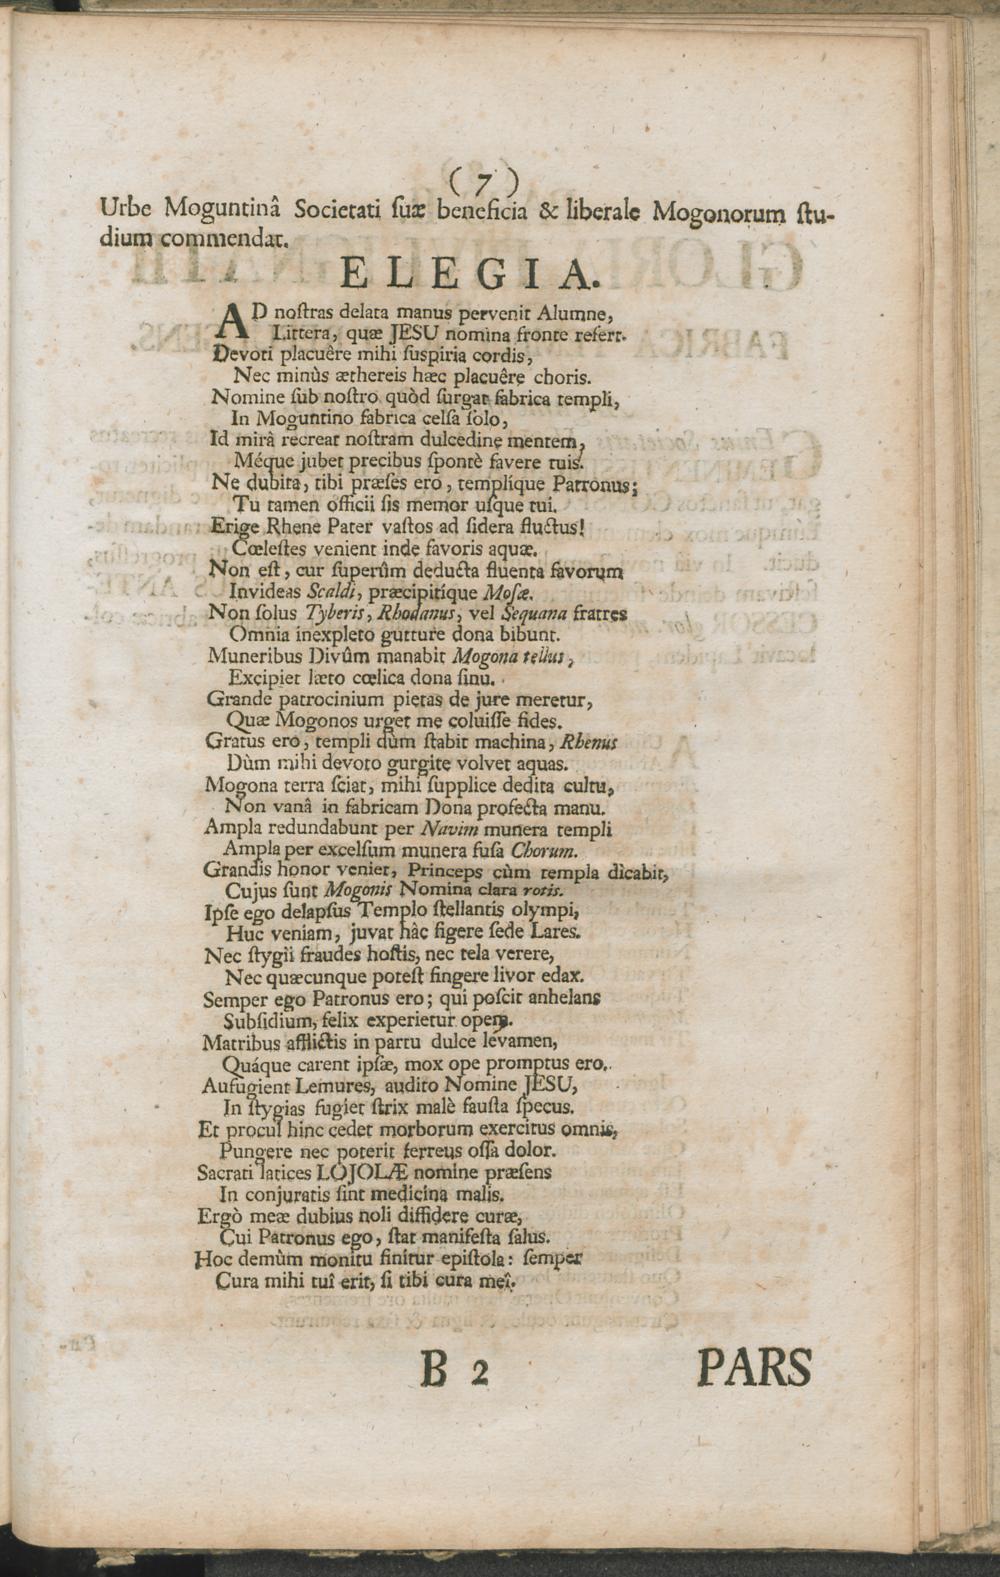 ( 7 )
Urbe Moguntinâ Societati ſuæ beneficia & liberale Mogonorum ſtu-
dium commendat.
ELEGIA.
AD noſtras delata manus pervenit Alumne,
Littera, quæ JESU nomina fronte refert.
Devoti placuêre mihi ſuspiria cordis,
Nec minùs æthereis hæc placuêre choris.
Nomine ſub noſtro quòd ſurgat fabrica templi,
In Moguntino fabrica celſa ſolo,
Id mirâ recreat noſtram dulcedine mentem,
Méque jubet precibus ſpontè favere tuis.
Ne dubita, tibi præſes ero, templíque Patronus;
Tu tamen officii ſis memor uſque tui.
Erige Rhene Pater vaſtos ad ſidera fluctus!
Cœleſtes venient inde favoris aquæ.
Non eſt, cur ſuperûm deducta fluenta favorum
Invideas Scaldi, præcipitíque Moſæ.
Non ſolus Tyberis, Rhodanus, vel Sequana fratres
Omnia inexpleto gutture dona bibunt.
Muneribus Divûm manabit Mogona tellus,
Excipiet læto cœlica dona ſinu.
Grande patrocinium pietas de jure meretur,
Quæ Mogonos urget me coluiſſe fides.
Gratus ero, templi dùm ſtabit machina, Rhenus
Dùm mihi devoto gurgite volvet aquas.
Mogona terra ſciat, mihi ſupplice dedita cultu,
Non vanâ in fabricam Dona profecta manu.
Ampla redundabunt per Navim munera templi
Ampla per excelſum munera fuſa Chorum.
Grandis honor veniet, Princeps cùm templa dìcabit,
Cujus ſunt Mogonis Nomina clara rotis.
Ipſe ego delapſus Templo ſtellantis olympi,
Huc veniam, juvat hâc figere ſede Lares.
Nec ſtygii fraudes hoſtis, nec tela verere,
Nec quæcunque poteſt fingere livor edax.
Semper ego Patronus ero; qui poſcit anhelans
Subſidium, felix experietur opem.
Matribus afflictis in partu dulce levamen,
Quáque carent ipſæ, mox ope promptus ero.
Aufugient Lemures, audito Nomine JESU,
In ſtygias fugiet ſtrix malè fauſta ſpecus.
Et procul hinc cedet morborum exercitus omnis,
Pungere nec poterit ferreus oſſa dolor.
Sacrati latices LOJOLÆ nomine præſens
In conjuratis ſint medicina malis.
Ergò meæ dubius noli diffidere curæ,
Cui Patronus ego, ſtat manifeſta ſalus.
Hoc demùm monitu finitur epiſtola: ſemper
Cura mihi tuî erit, ſi tibi cura meî.
B 2 PARS